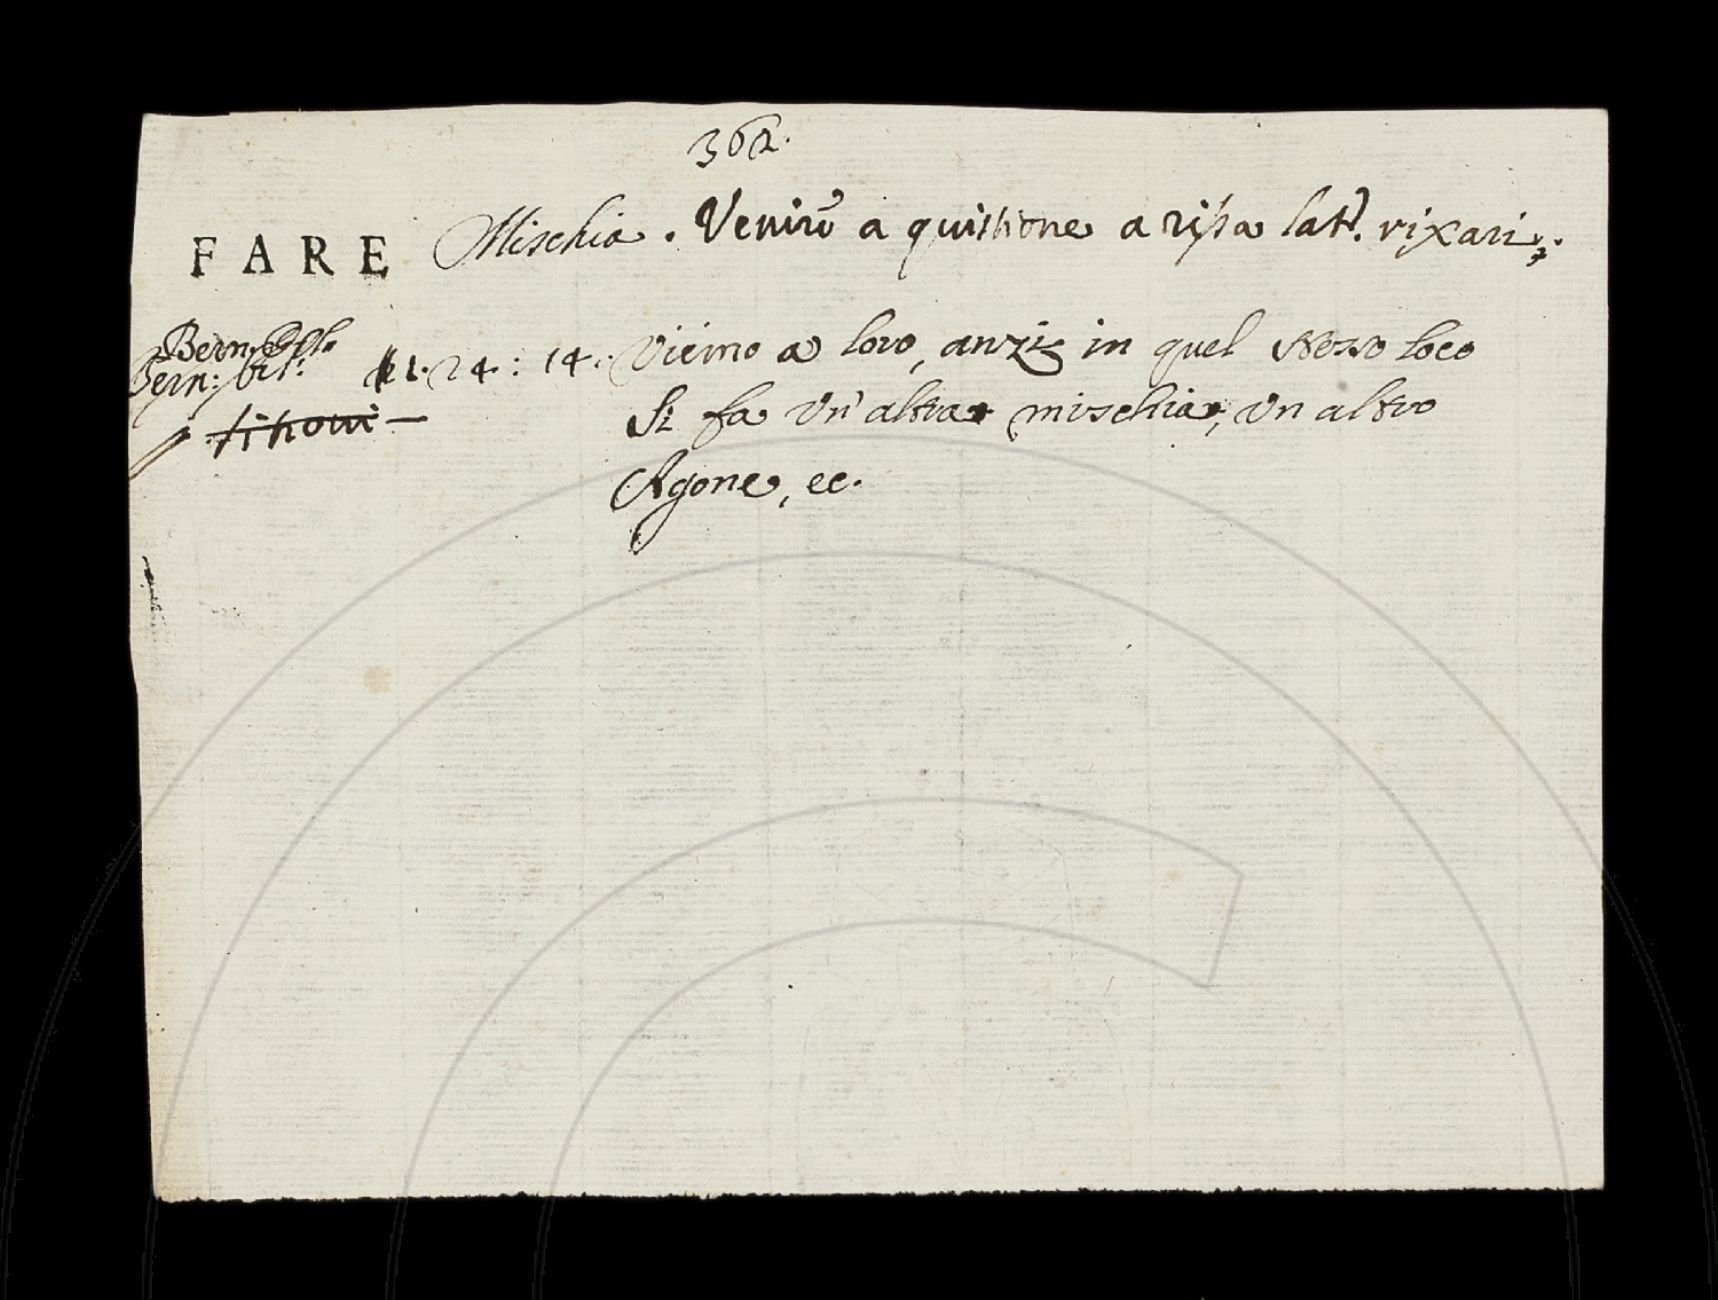 362.
FARE Mischia. Venire a quistione a rissa lat. rixari.
Bern.
Bern: 1. 24: 14. Vicino a loro, anzi in quel stesso loco
Si fa un' altra mischia, un altro
Agone, ec.